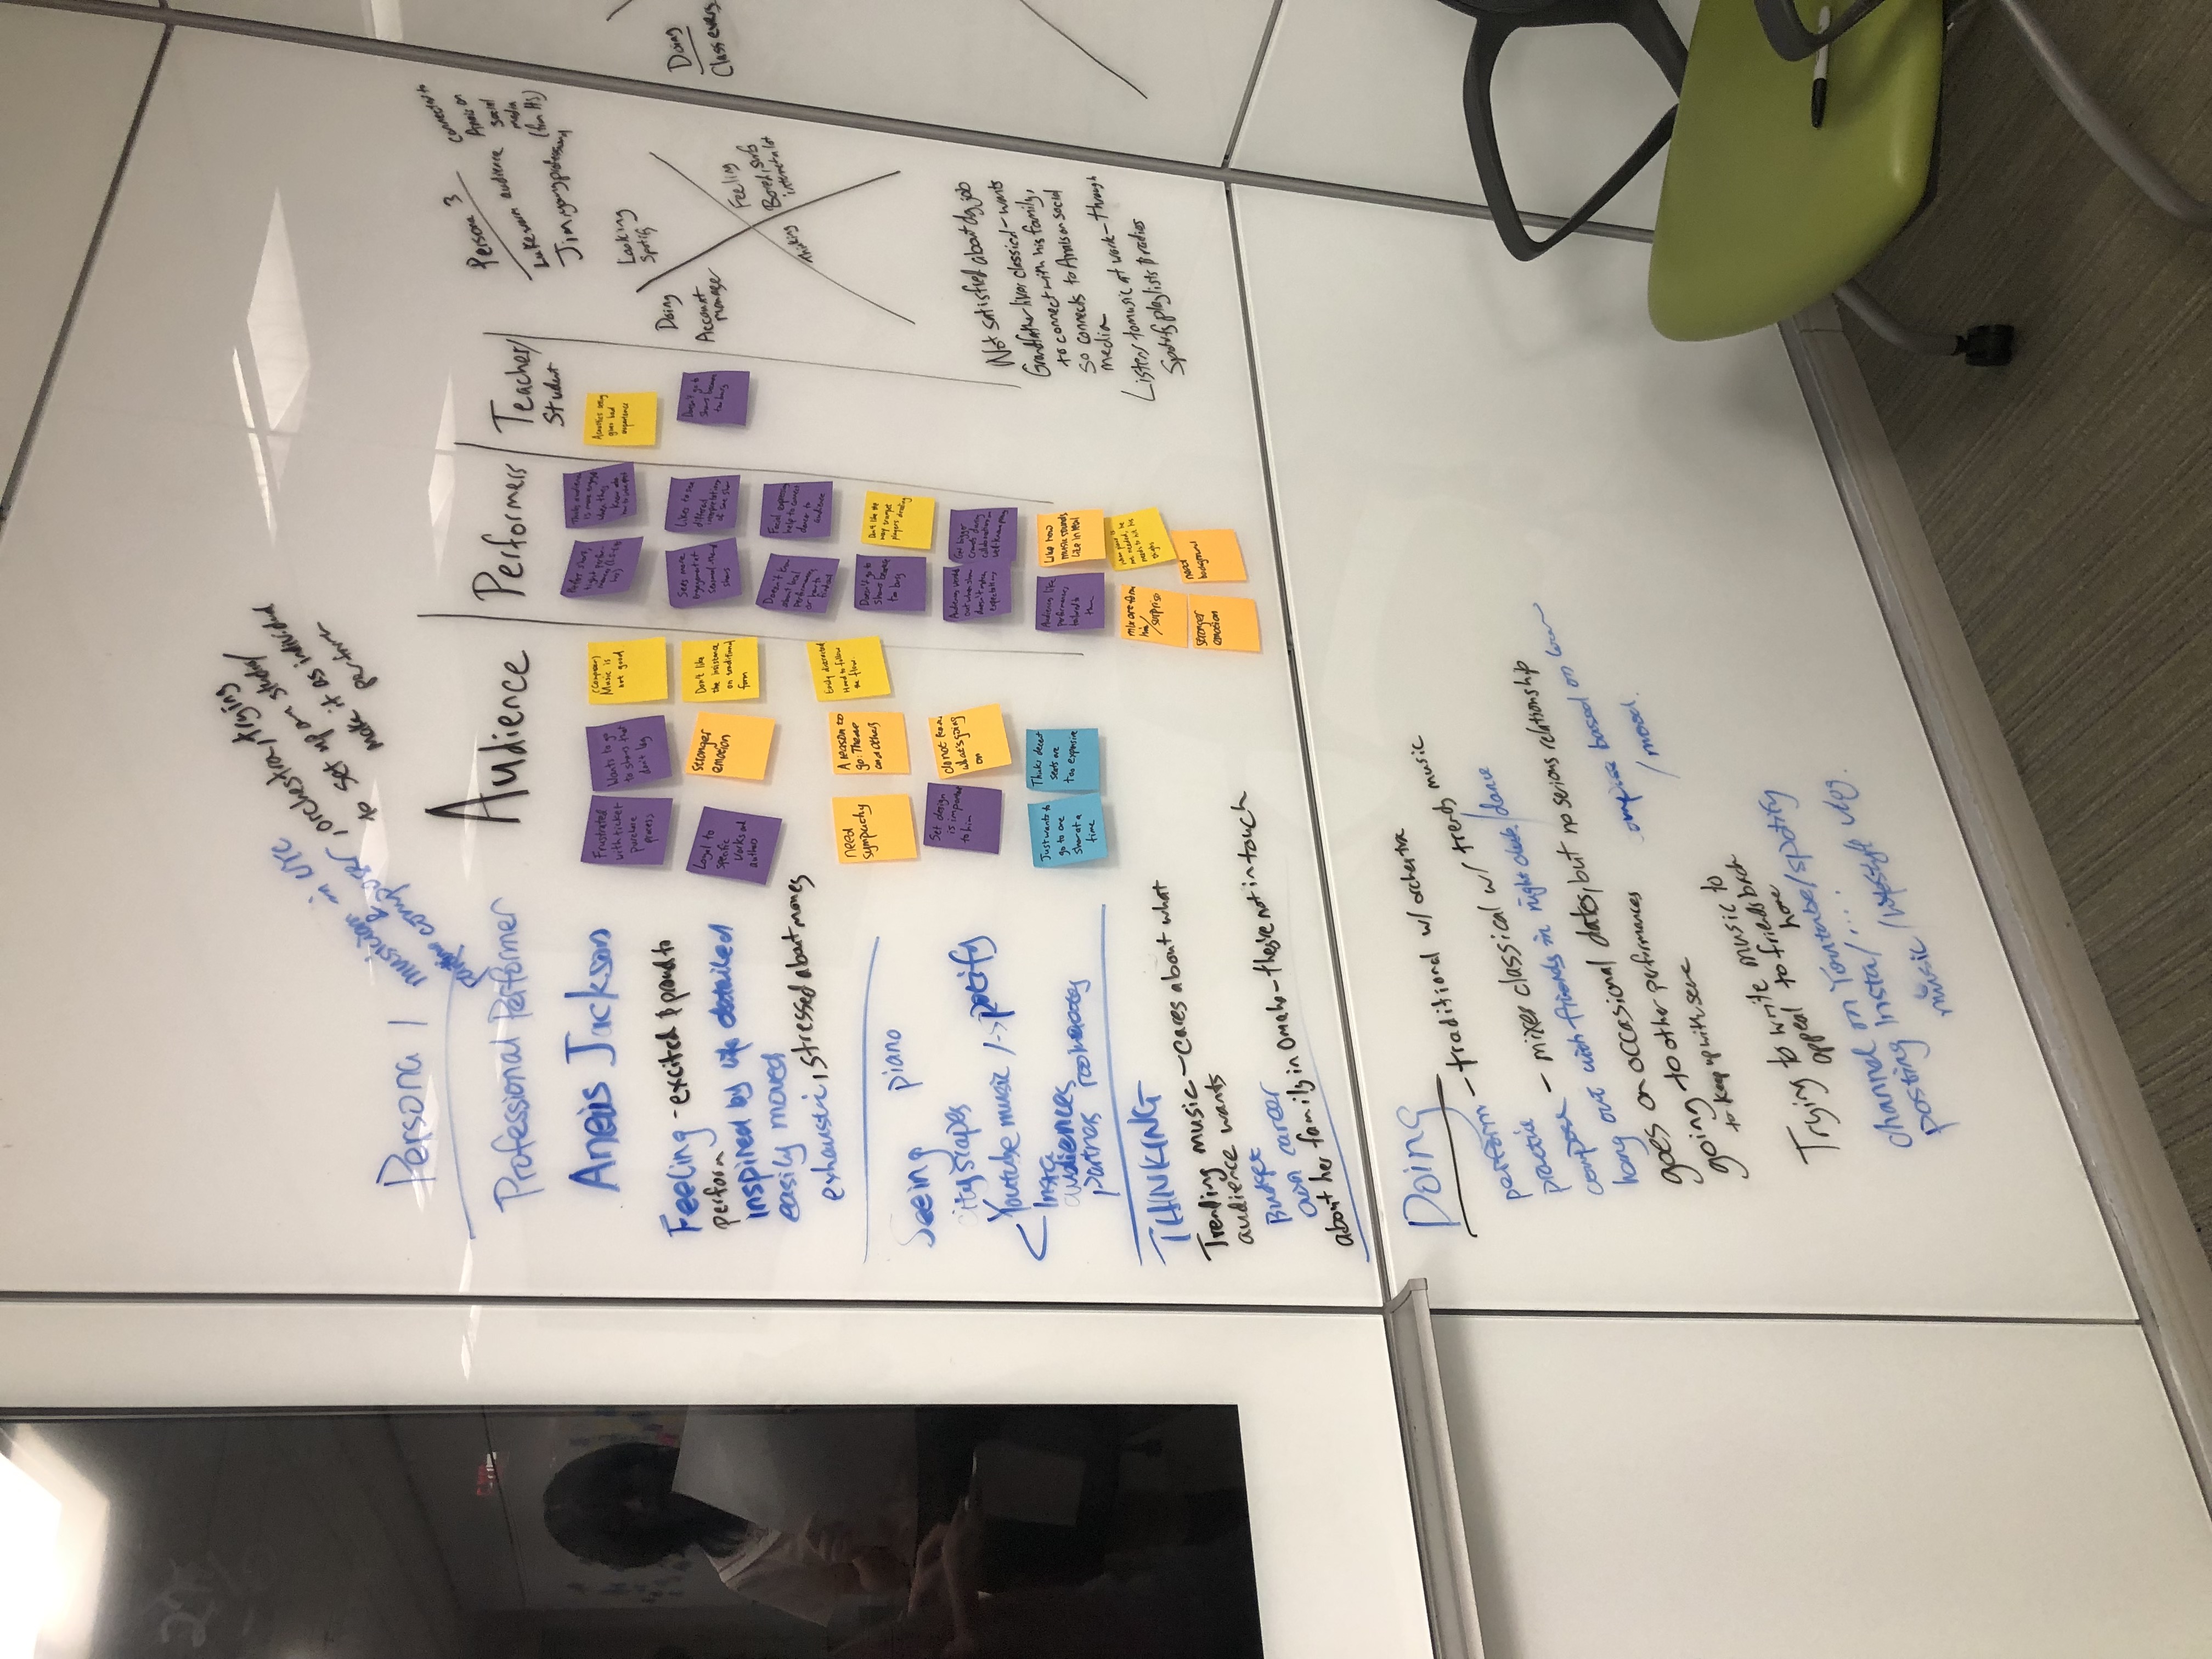 Persona 1
musician in NYC
&
composer, orchestra, trying
to set up own studio/
make it as individual
performer
Professional Performer
Aneis Jackson
Feeling - excited & proud to
perform
inspired by detailed
easily moved
, stressed about money
Seeing piano
city scapes
Youtube music / Spotify
Insta
audiences
partners
THINKING
Trending music - cares about what
audience wants
Budget
own career
about her family in Omaha - they're not in touch
Doing
perform - traditional w/ orchestra
practice
compose - mixes classical w/ trendy music
hang out with friends in night club/dance
goes on occasional dates, but no serious relationship
going to other performances
to keep up with scene
based on
/ mood.
Trying to write music to
appeal to friends back
home
channel on Youtube/Spotify
posting Insta/...
music / lifestyle vlog.
Audience
Frustrated
with ticket
purchase
process
Wants to go
to shows that
don't lag
(Composer)
Music is
not good
Loyal to
specific
works and
authors
Stronger
emotion
Don't like
the insistence
on traditional
form
need
sympathy
A reason to
go: Theme
and others
Easily distracted
Hard to follow
the flow.
Set design
is important
to him
do not know
what's going
on
Just wants to
go to one
show at a
time
Thinks decent
seats are
too expensive
Performers
Thinks audience
is more engaged
when they
know
Sees more
engagement at
seasonal
shows
Likes to see
different
interpretations
of same show
Doesn't know
about local
performances
or how to
find out
Facial expressions
help to connect
dancer to
audience
Doesn't go to
shows because
too busy
Don't like the
way trumpet
players
Audiences
out when show
doesn't match
expectations
Get bigger
crowds during
collaborations or
well-known
Audiences like
performances
tailored to
them
Like how
music sounds
like in real
mix art form
/surprise
needed, he
needs to
Stronger
emotion
need
background
Teacher/
Student
Acoustics setting
gives bad
experience
Doesn't go to
shows because
too busy
Persona 3
Lukewarm audience
Jim, young professional
connected to
Aneis on
social
media
(from HS)
Looking
Spotify
Doing
Account
manager
Feeling
Bored, surfs
internet a lot
Thinking
Not satisfied about day job
Grandfather likes classical - wants
to connect with his family,
so connects to Aneis on social
media
Listens to music at work - through
Spotify playlists & radios
Doing
Class every
EXIT